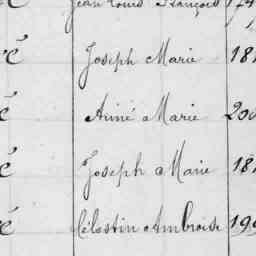 Jean Louis François
é Joseph Marie 18
é Aimé Marie 200
é Joseph Marie 18
é Célestin Ambroise 199